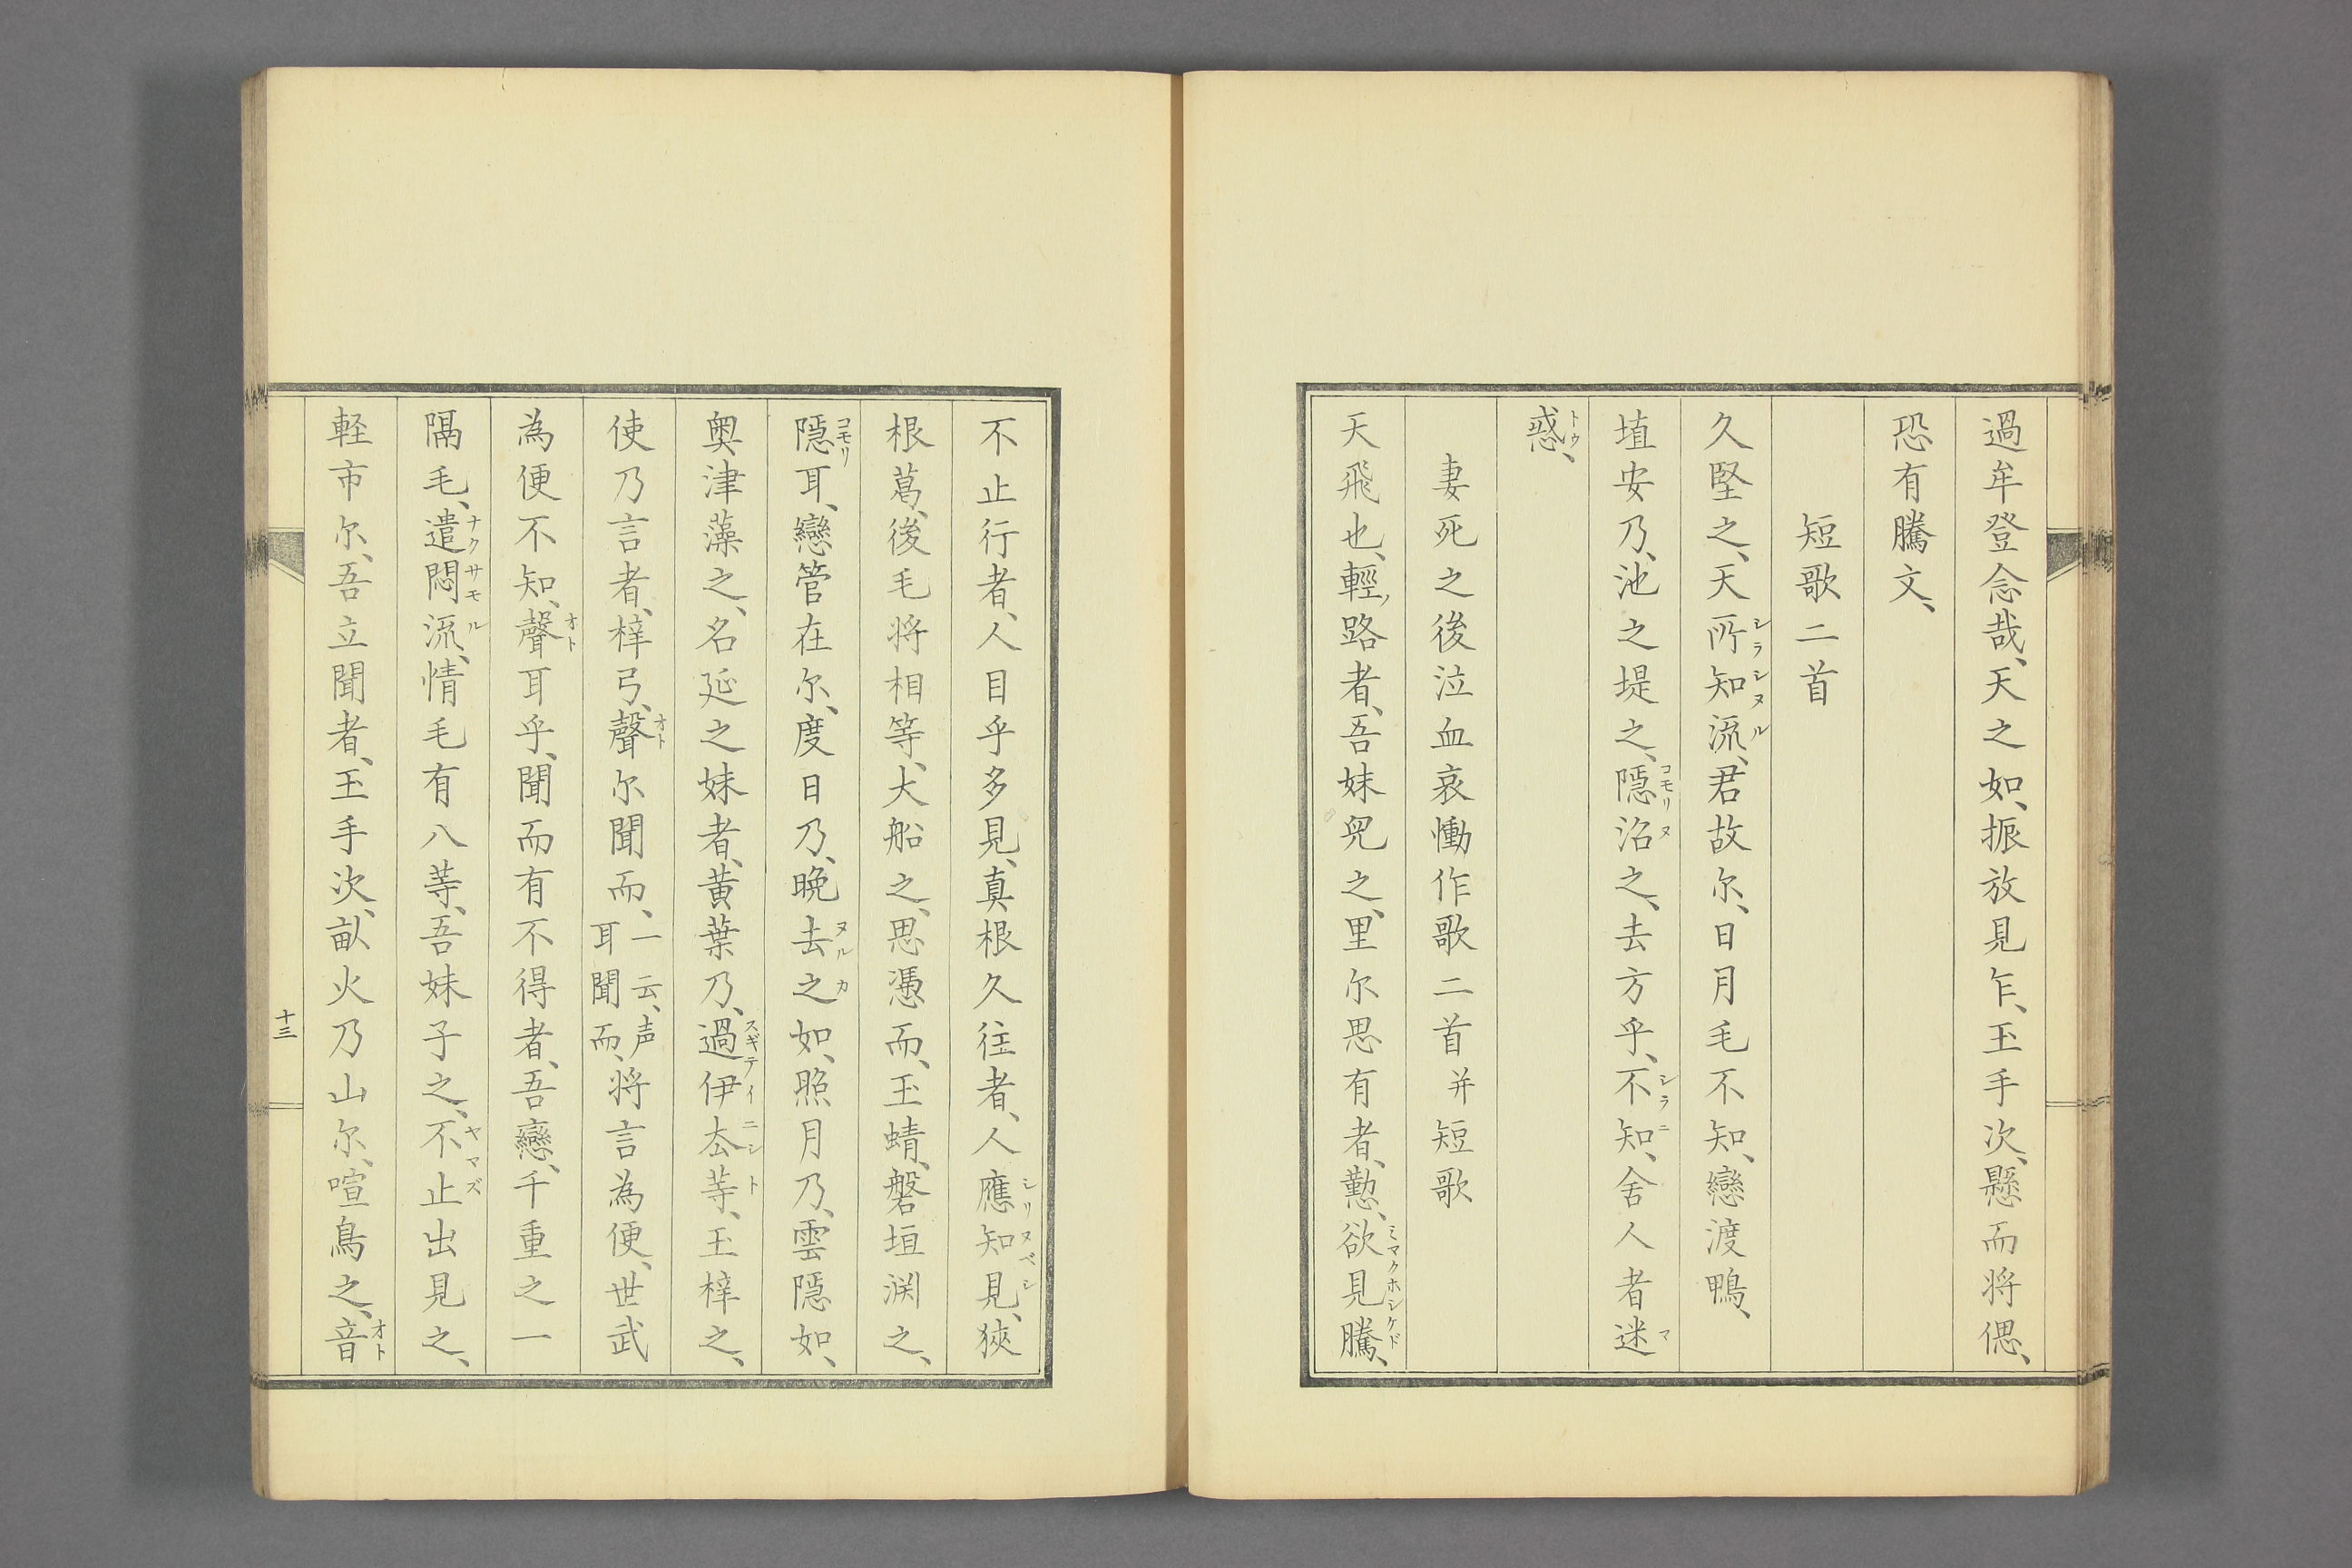 過牟登念哉、天之如、振放見乍、玉手次、懸而将偲、
恐有騰文、
短歌二首
久堅之、天所知流、君故尓、日月毛不知、戀渡鴨、
埴安乃、池之堤之、隠沼之、去方乎、不知、舎人者迷
惑、
妻死之後泣血哀慟作歌二首并短歌
天飛也、輕路者、吾妹兒之、里尓思有者、懃、欲見騰、
不止行者、人目乎多見、真根久往者、人應知見、狹
根葛、後毛将相等、大船之、思憑而、玉蜻、磐垣渕之、
隠耳、戀管在尓、度日乃、晩去之如、照月乃、雲隠如、
奥津藻之、名延之妹者、黄葉乃、過伊去等、玉梓之、
使乃言者、梓弓、聲尓聞而、一云、声耳聞而、将言為便、世武
為便不知、聲耳乎、聞而有不得者、吾戀、千重之一
隔毛、遣悶流、情毛有八等、吾妹子之、不止出見之、
軽市尓、吾立聞者、玉手次、畝火乃山尓、喧鳥之、音
十三